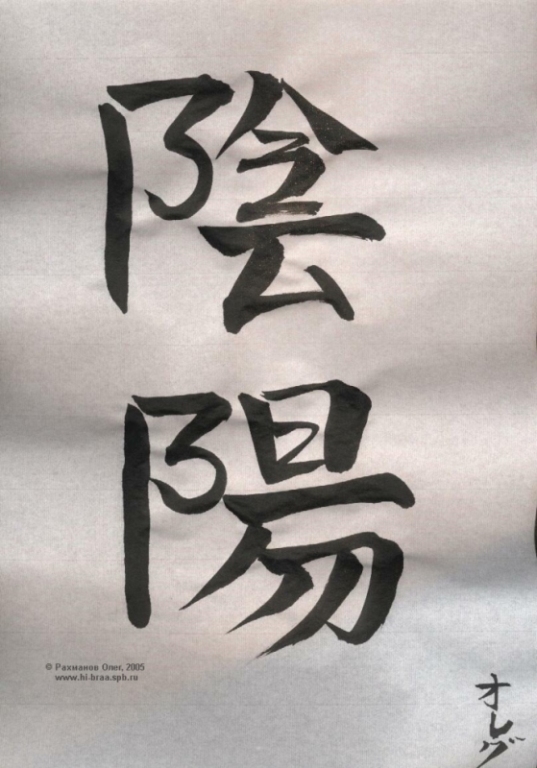 陰
陽
© Рахманов Олег, 2005
www.hi-braa.spb.ru
オレグ